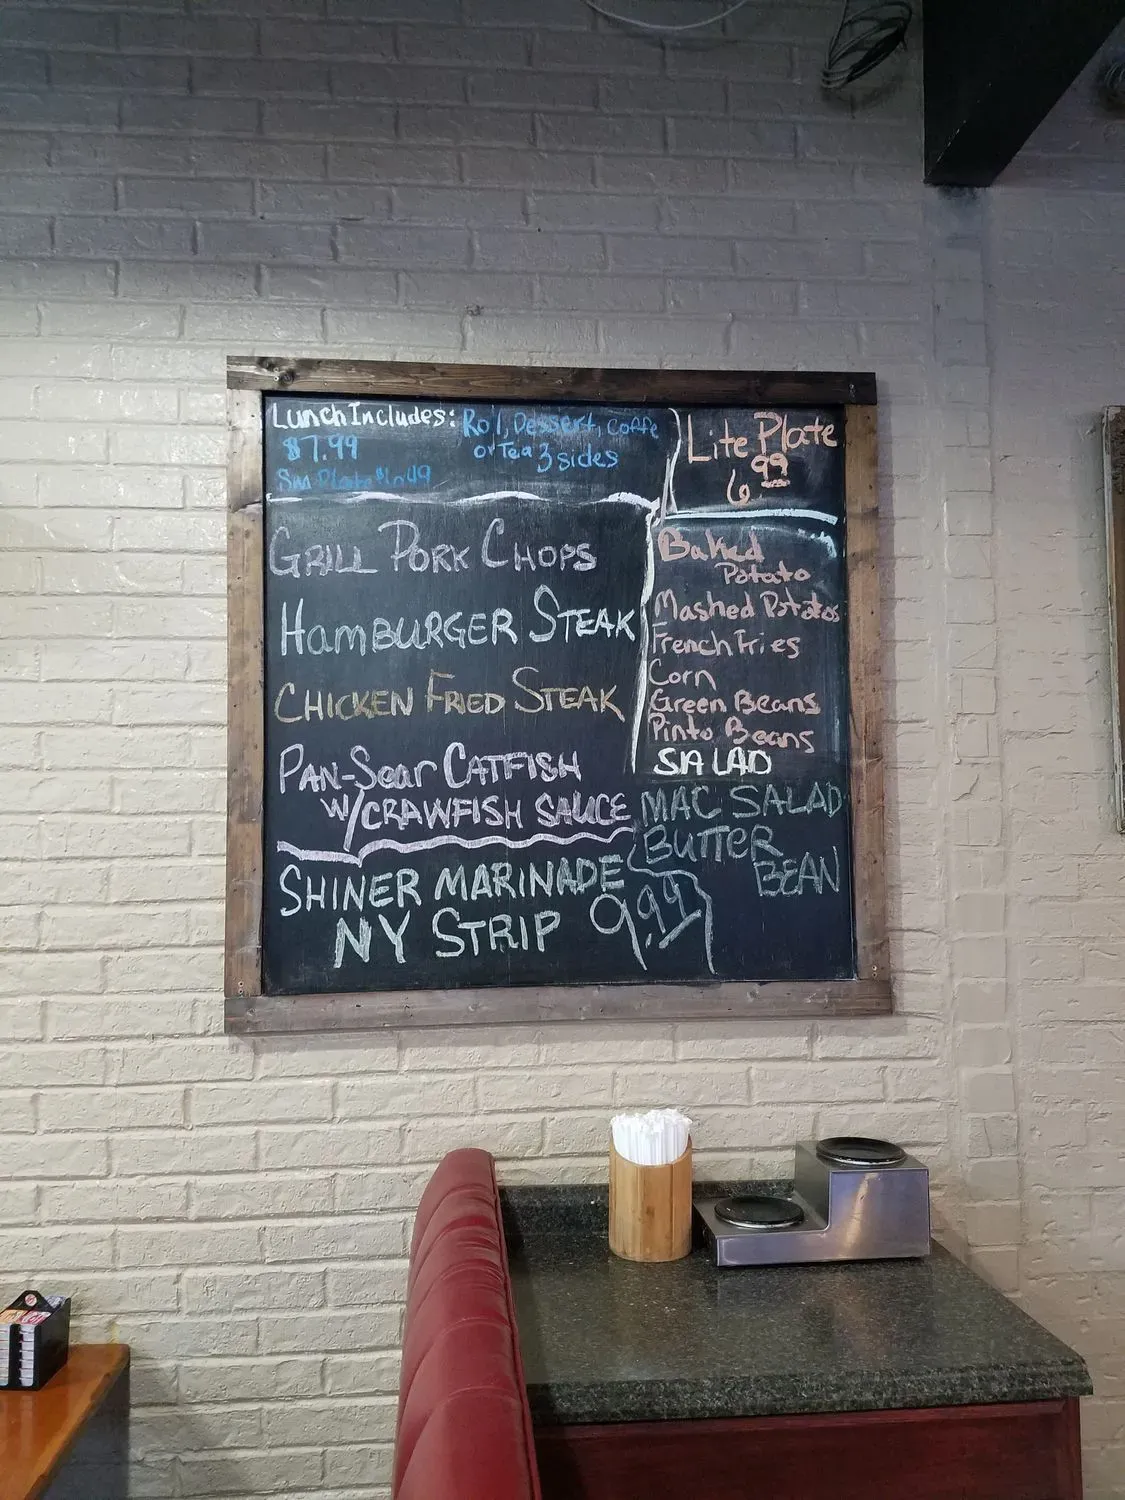 Lunch Includes: Roll, Dessert, Coffe
$7.99 or Tea 3 sides
Lite Plate
6.99
GRILL PORK CHOPS
HAMBURGER STEAK
CHICKEN FRIED STEAK
PAN-Sear CATFISH
W/CRAWFISH SAUCE
SHINER MARINADE
NY STRIP 9.99
Baked
Potato
Mashed Potatos
French Fries
Corn
Green Beans
Pinto Beans
SALAD
MAC SALAD
BUTTER
BEAN